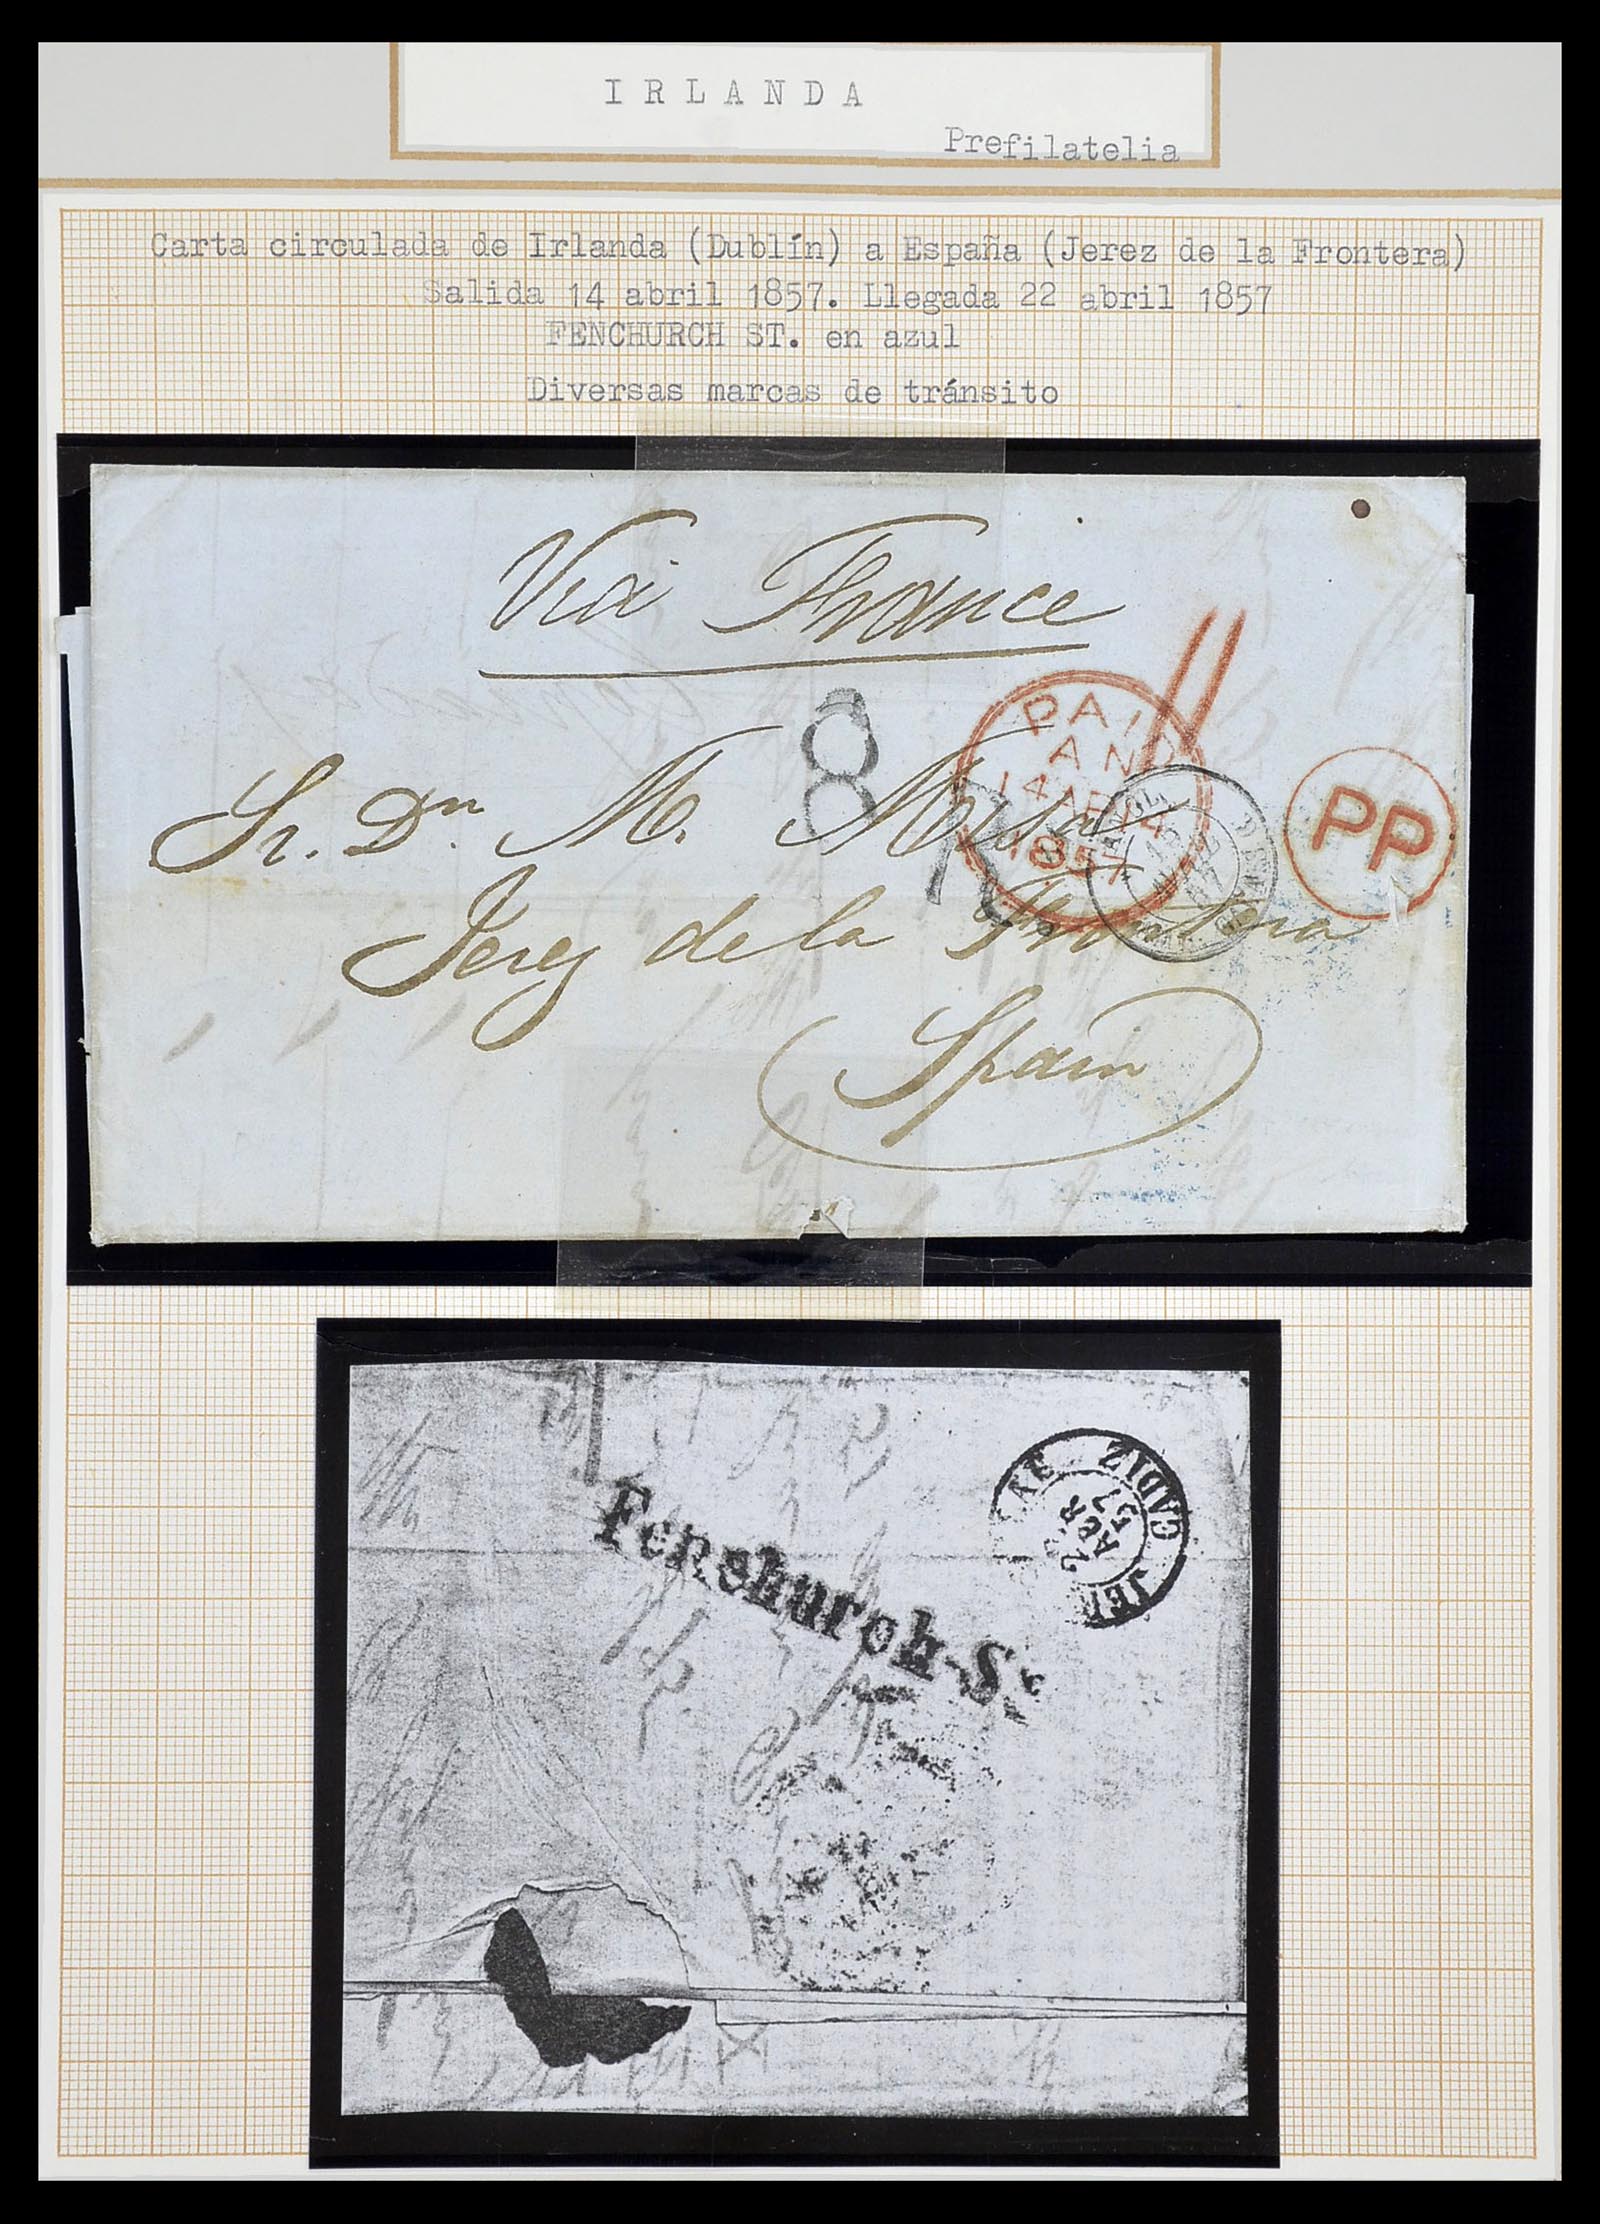 IRLANDA
Prefilatelia
Carta circulada de Irlanda (Dublín) a España (Jerez de la Frontera)
Salida 14 abril 1857. Llegada 22 abril 1857
FENCHURCH ST. en azul
Diversas marcas de tránsito
Via France
8
PAID
14 AP 14
1857
PP
Sr. Dn. M. Misa
Jerez de la Frontera
Spain
Fenchurch-St
CADIZ
ABR
57